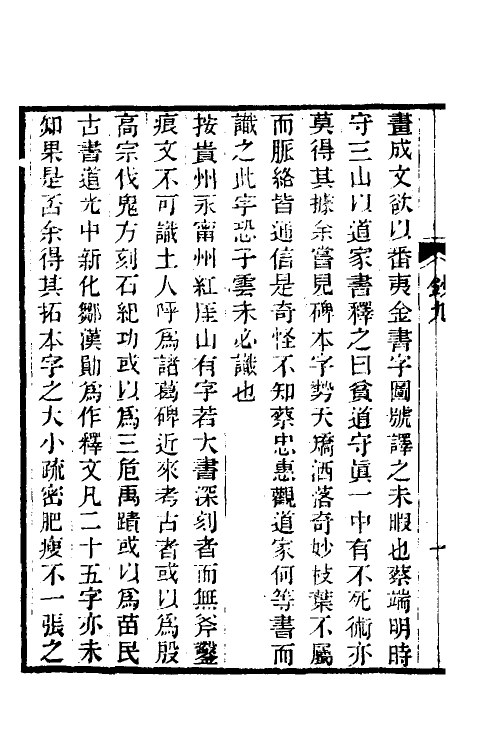 畫成文欲以番夷金書字圖號譯之未暇也蔡端明時
守三山以道家書釋之曰貧道守眞一中有不死術亦
莫得其據余嘗見碑本字勢夭矯洒落奇妙枝葉不屬
而脈絡皆通信是奇怪不知蔡忠惠觀道家何等書而
識之此字恐子雲未必識也
按貴州永甯州紅厓山有字若大書深刻者而無斧鑿
痕文不可識土人呼爲諸葛碑近來考古者或以爲殷
高宗伐鬼方刻石紀功或以爲三危禹蹟或以爲苗民
古書道光中新化鄒漢勛爲作釋文凡二十五字亦未
知果是否余得其拓本字之大小疏密肥瘦不一張之
鈔九
十